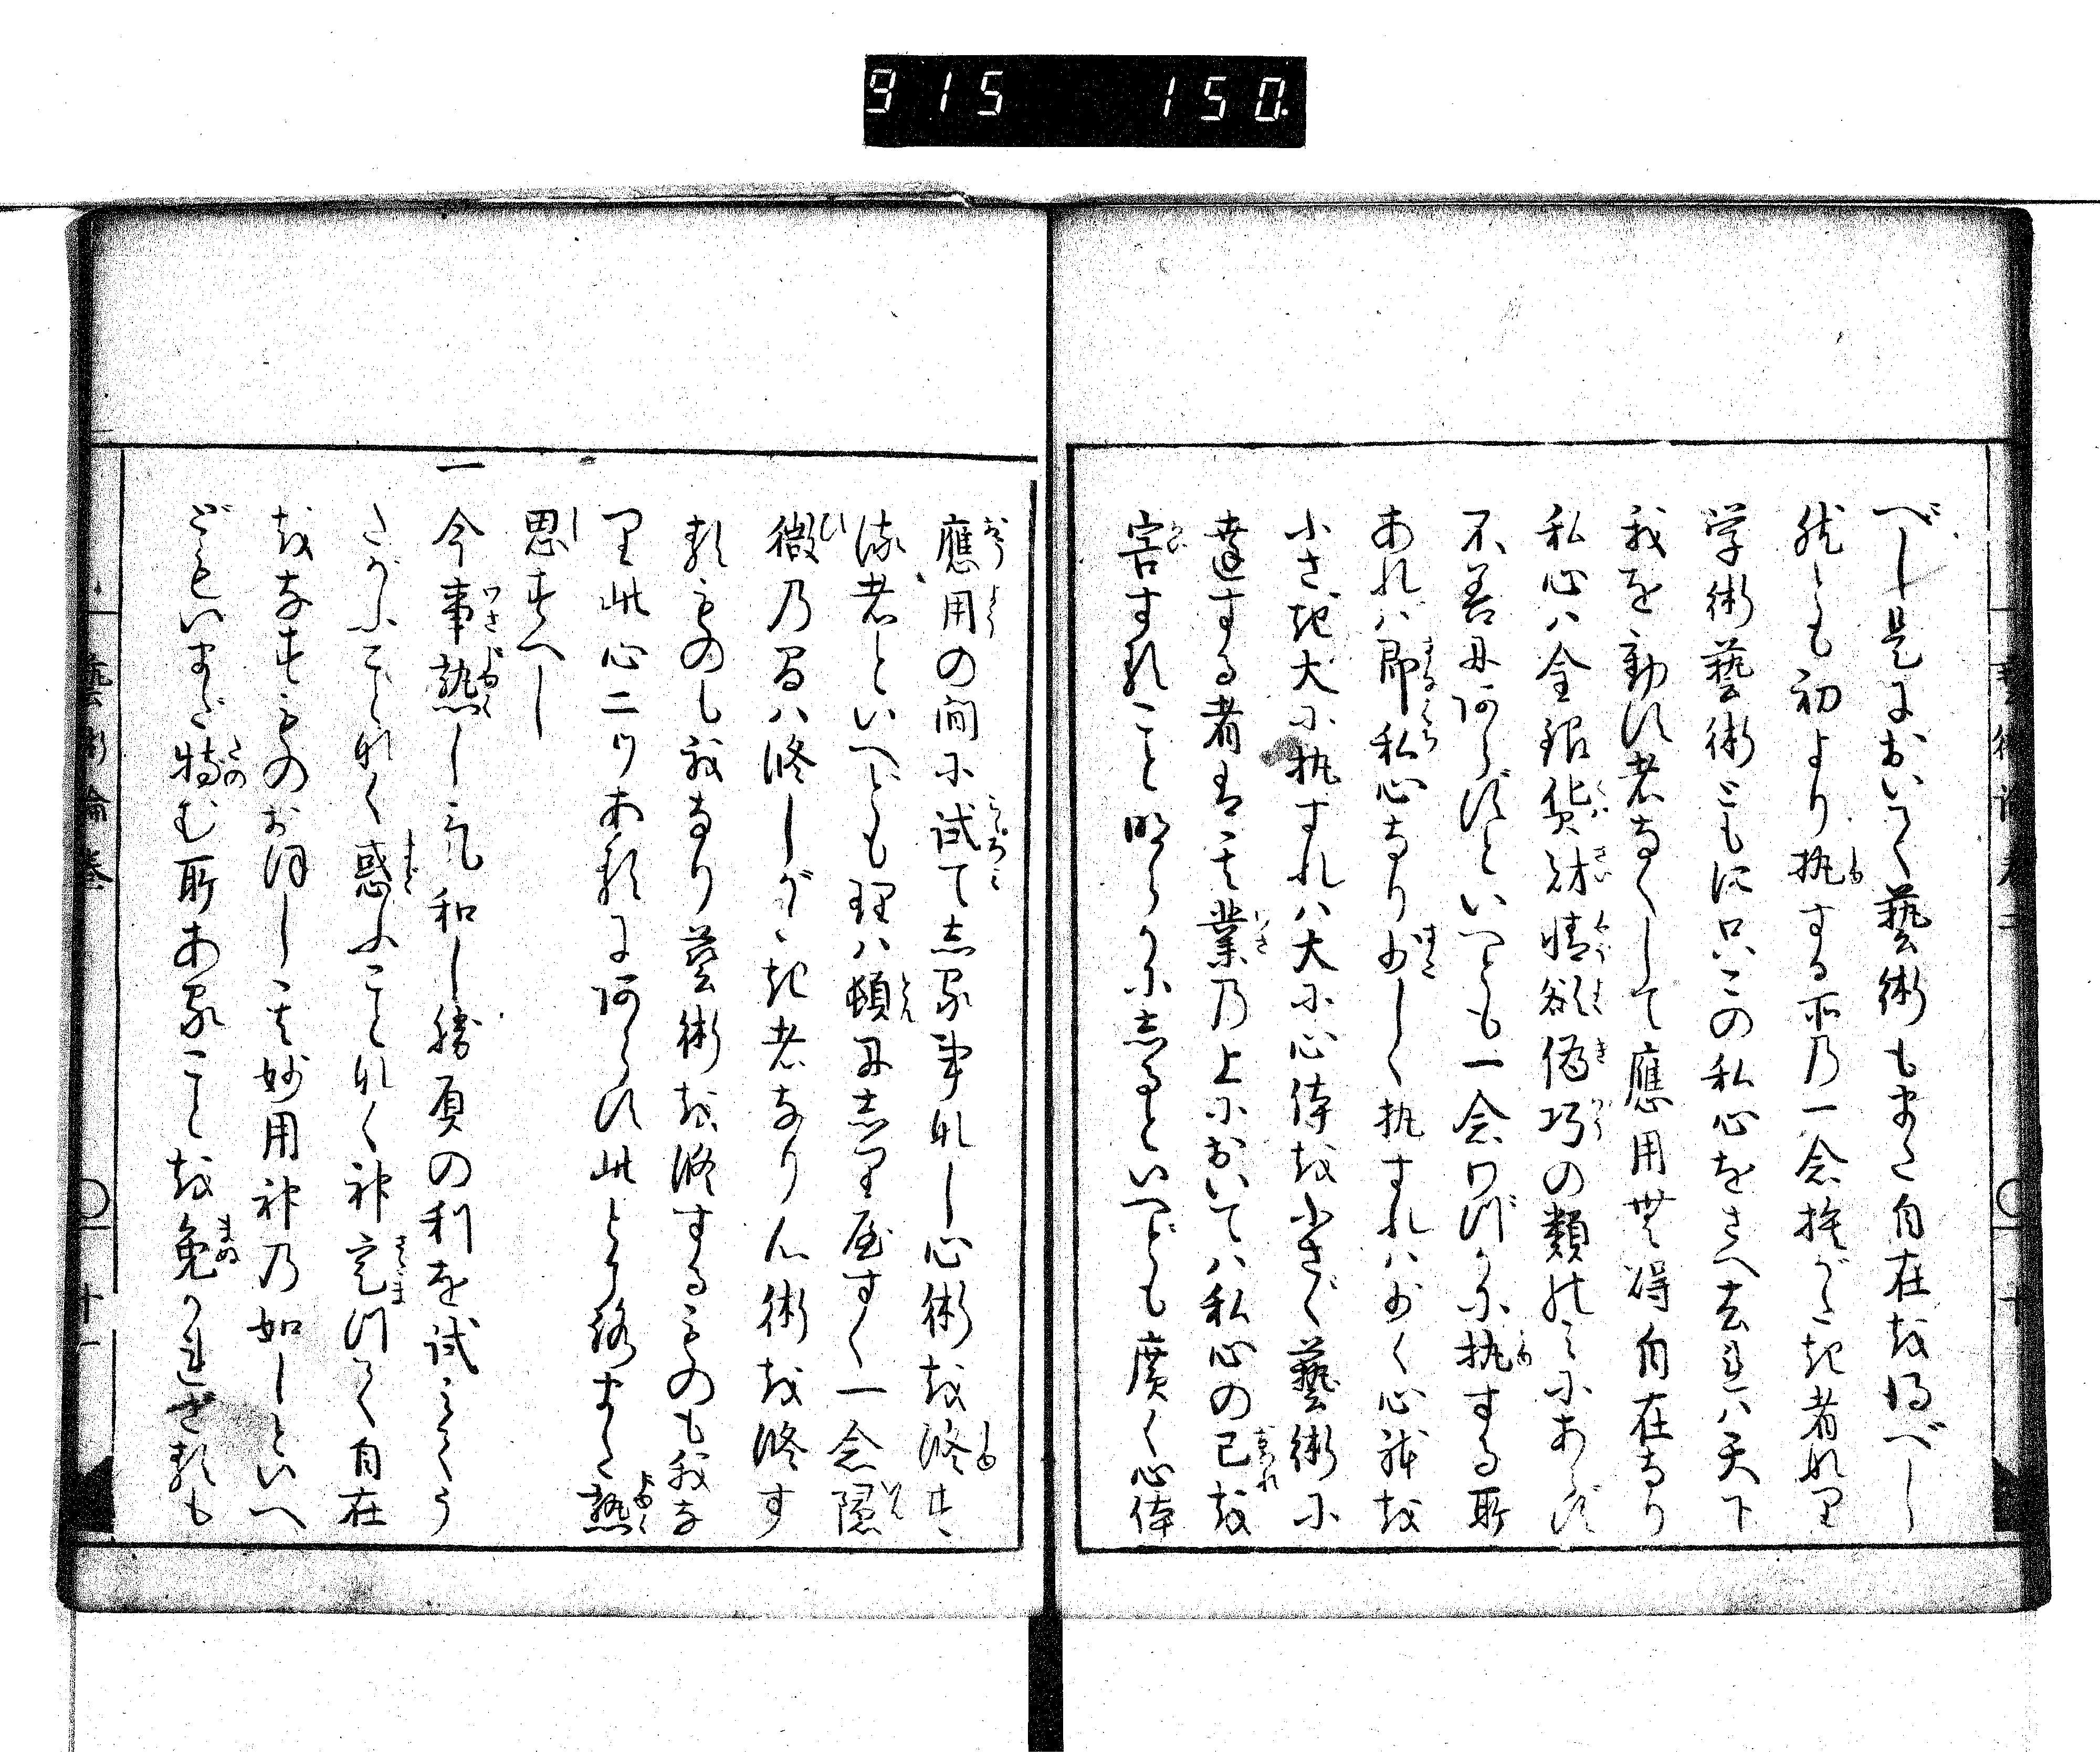 915 150.
べし是においてく藝術もまた自在を得べし
然とも初より執する所の一念捨がたき者なり
学術藝術ともに只この私心をさへ去れハ天下
我を動す者なくして應用無碍自在なり
私心ハ金銀貨財情欲偽巧の類のミにあらず
不善にあらずといへども一念わづかに執する所
あれハ即私心なり少しく執すれハ少く心体を
小さき大に執すれハ大に心体を小さぐ藝術に
達する者ハ其業の上においてハ私心の己を
害すること明らかに志るといへども廣く心体
應用の間に試て志る事なし心術を修す
る者といへども理ハ頓に志り易すく一念隠
微の間ハ修しがたき者なり心術を修す
るものも我なり藝術を修するものも我な
り此心二ツあるにあらす此とり絡まく熟
思すへし
一今事熟し氣和し勝負の利を試ミてう
たがふことなく惑ふことなく神定つて自在
をなすものおほし其妙用神の如しといへ
どもいまだ特む所あることを免かれざるも
藝術論巻
十
藝術論巻
十一